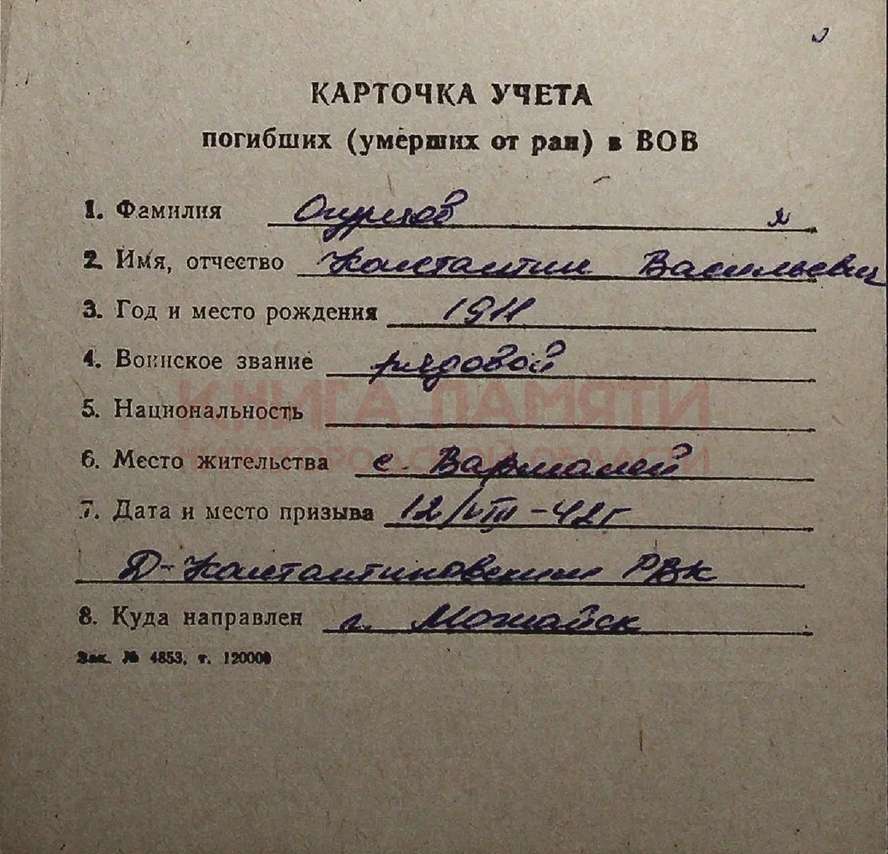 КАРТОЧКА УЧЕТА
погибших (умерших от ран) в ВОВ
1. Фамилия
2. Имя, отчество Константин Васильевич
3. Год и место рождения 1911
4. Воинское звание рядовой
КНИГА ПАМЯТИ
5. Национальность
6. Место жительства с. Вармалей
7. Дата и место призыва 12/VIII-42г
Д-Константиновским РВК
8. Куда направлен г. Можайск
Зак. № 4853, т. 120000